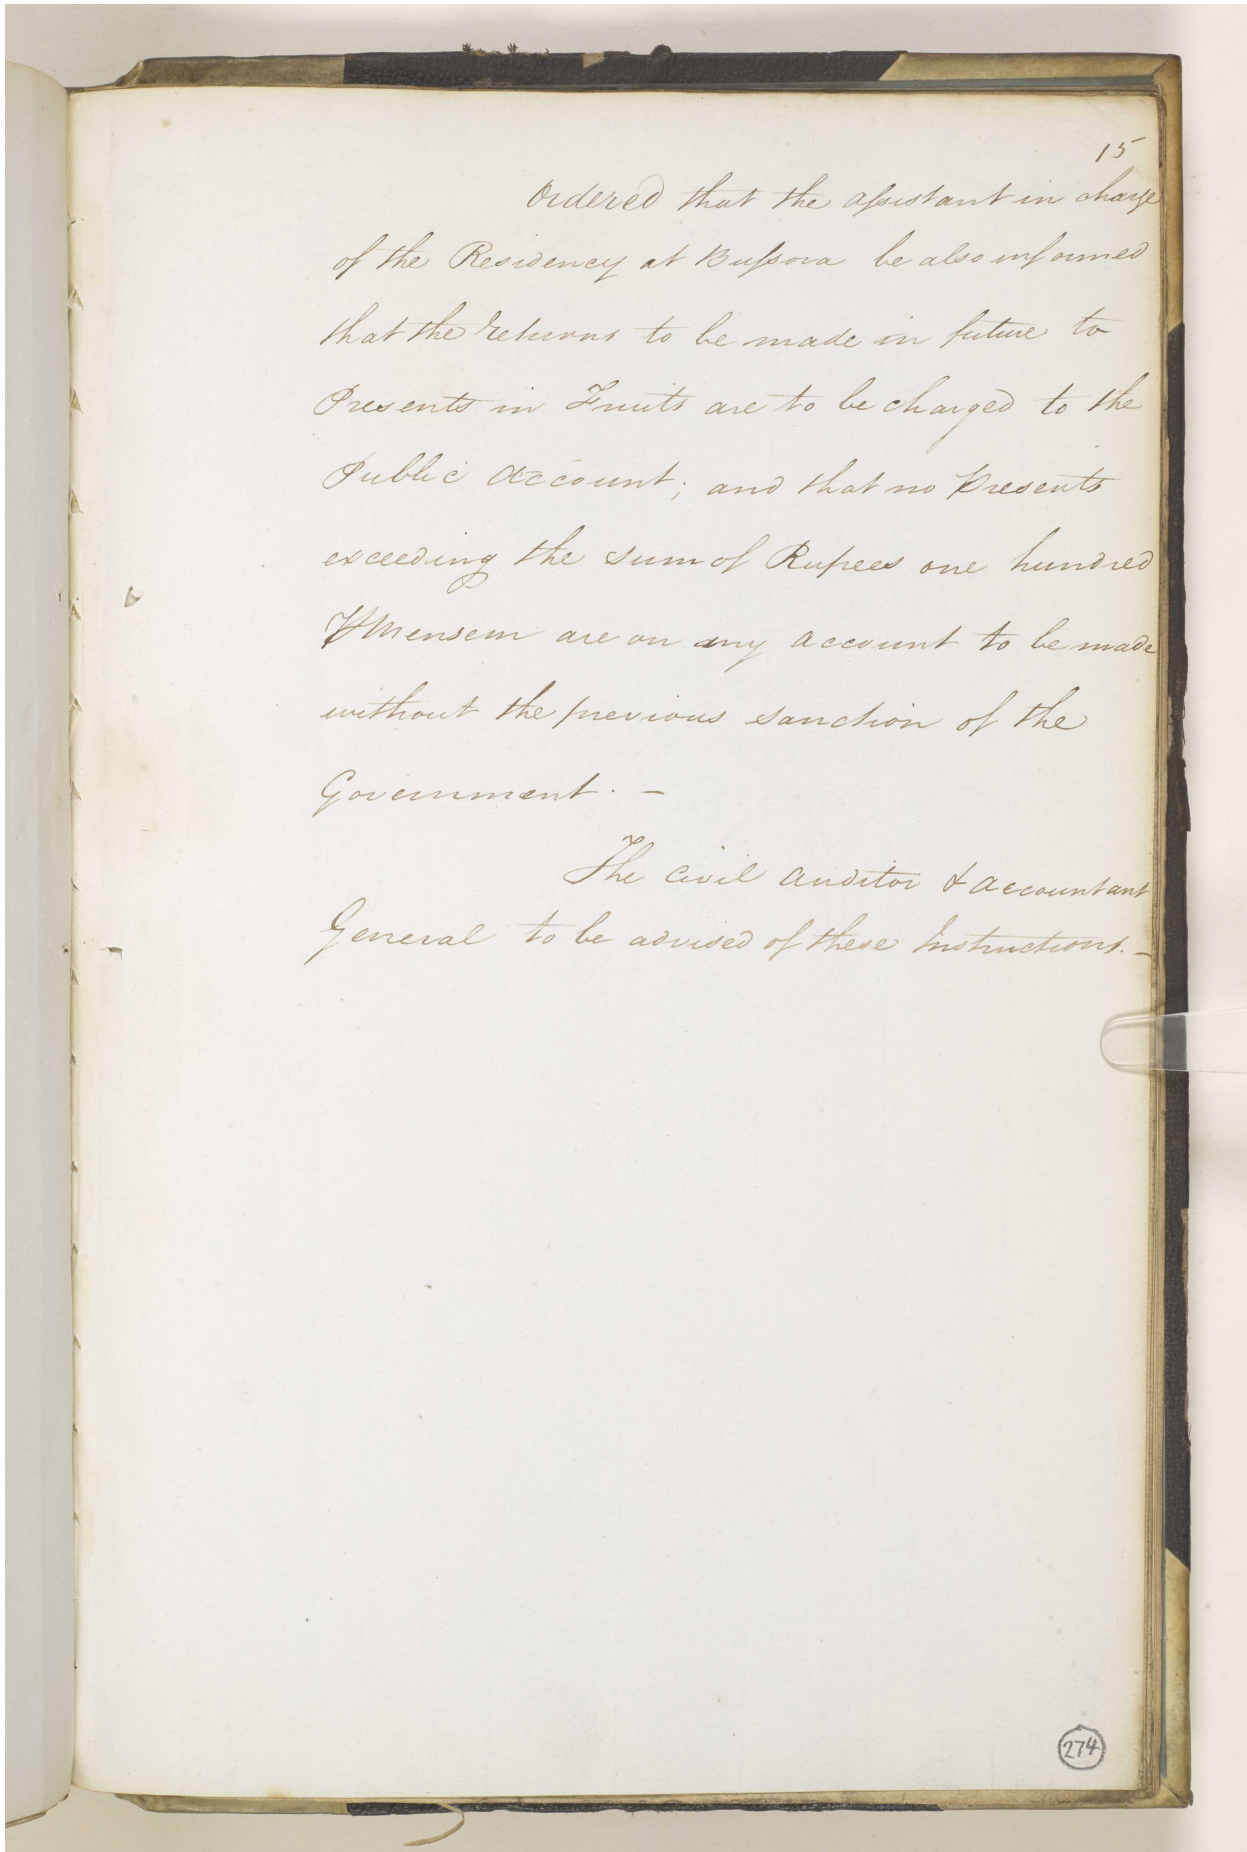 15
Ordered that the assistant in charge
of the Residency at Bussora be also informed
that the returns to be made in future to
Presents in Fruits are to be charged to the
Public Account; and that no Presents
exceeding the sum of Rupees one hundred
⅌ Mensem are on any account to be made
without the previous sanction of the
Government. —
The Civil Auditor & Accountant
General to be advised of these Instructions. —
274